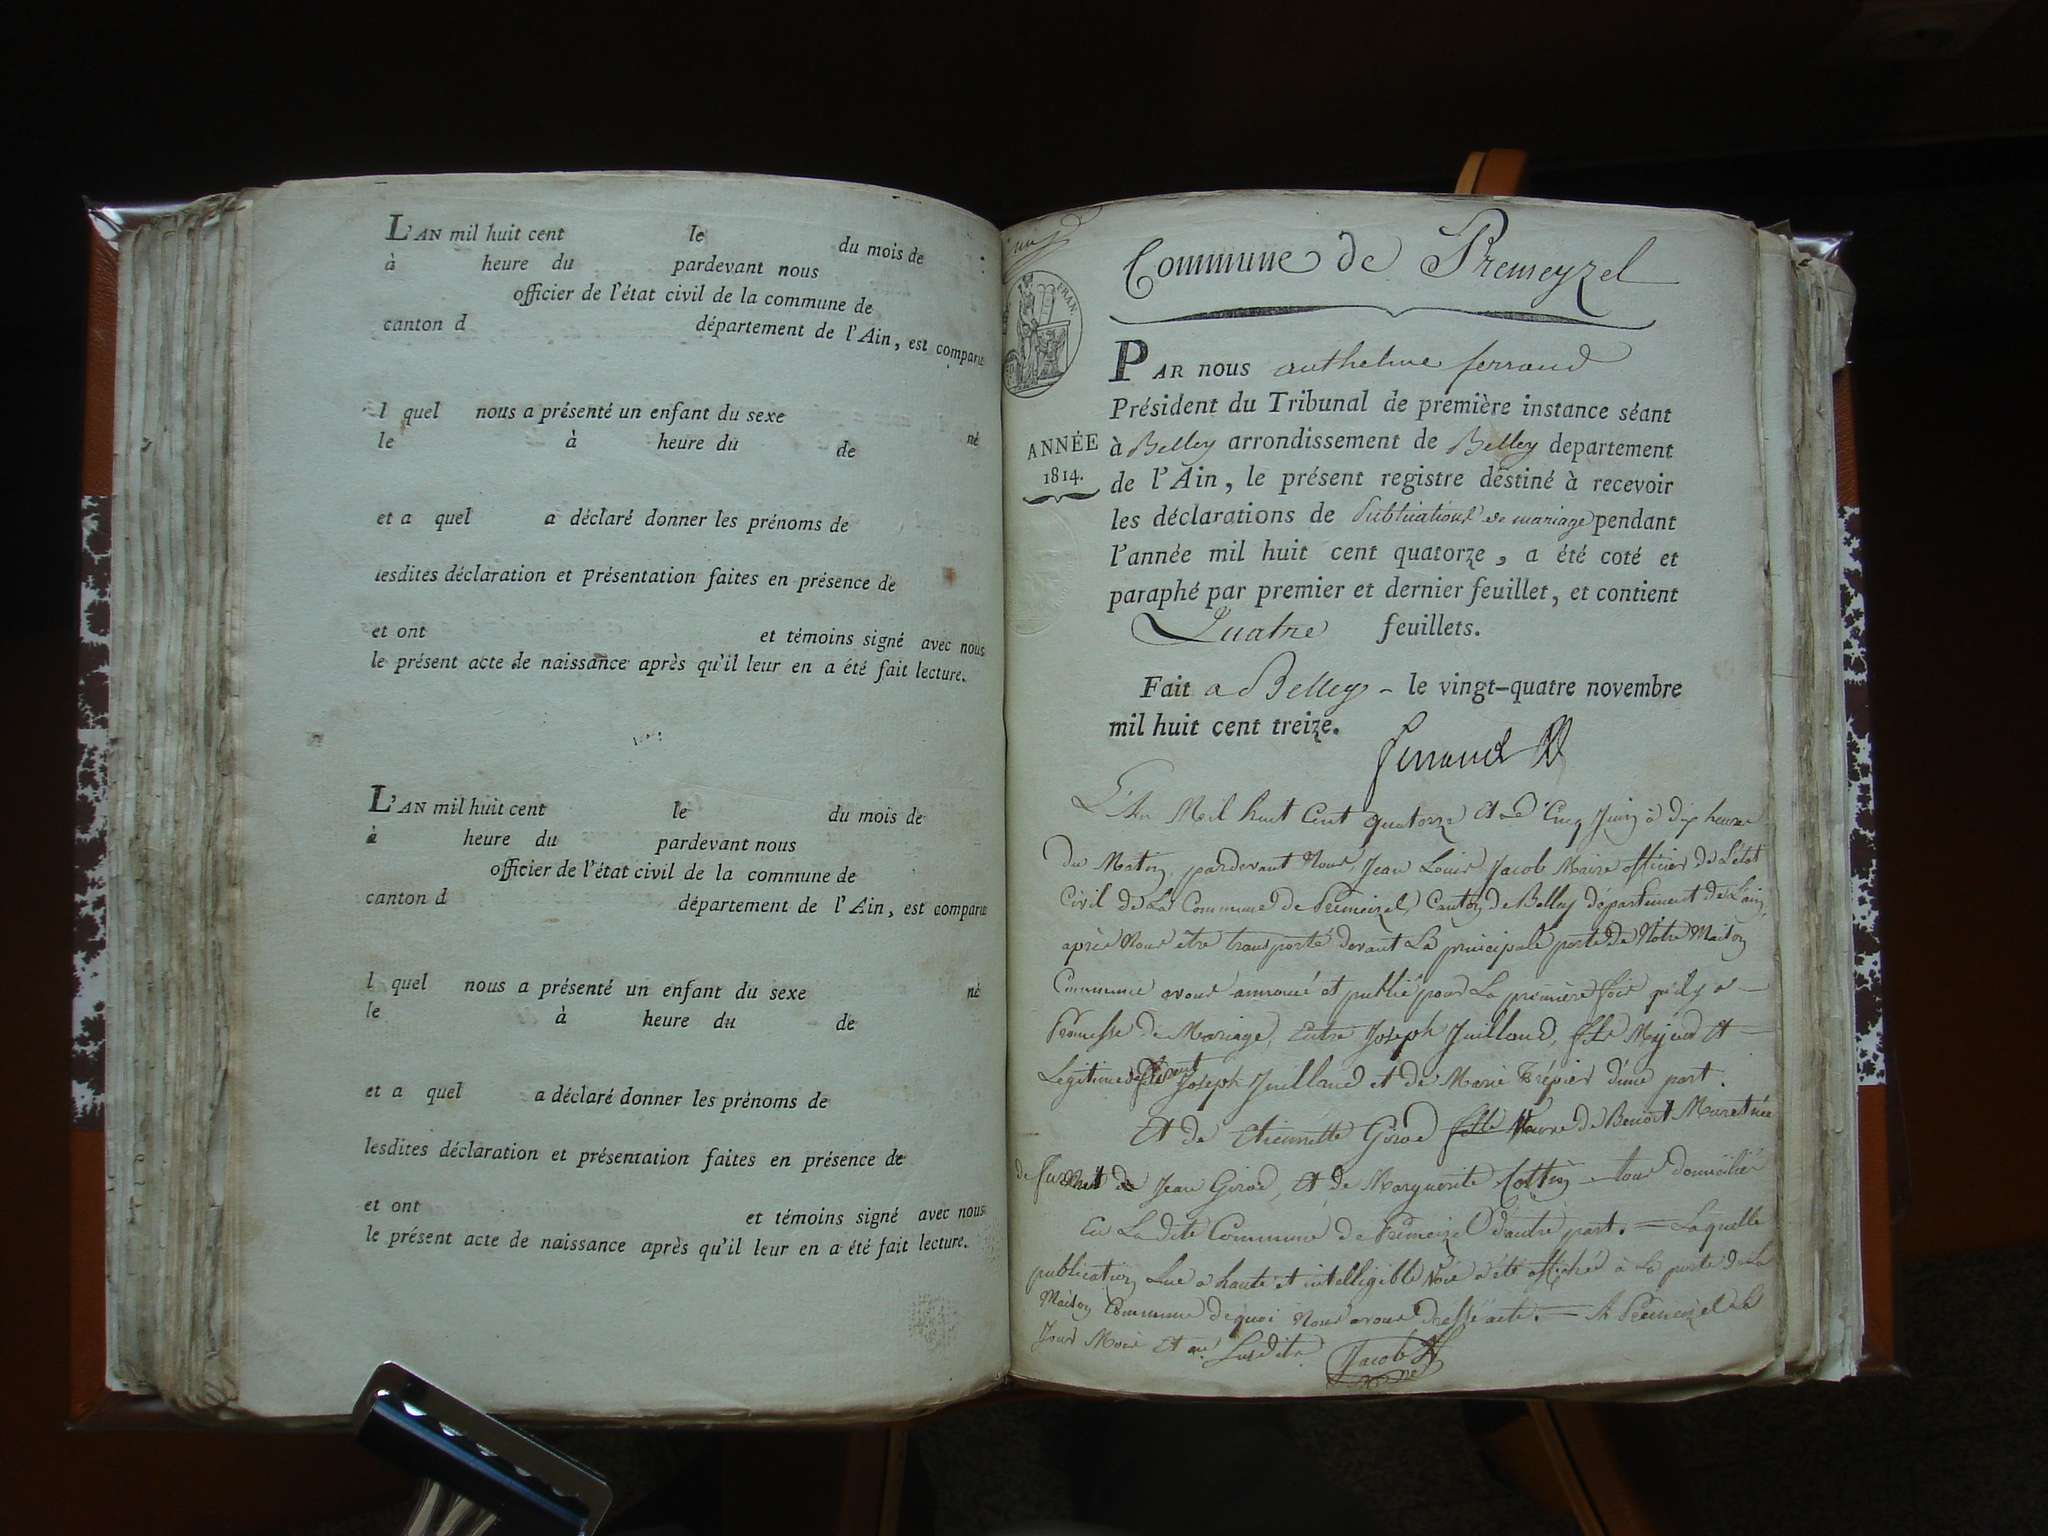 L'AN mil huit cent le du mois de
à heure du pardevant nous
officier de l'état civil de la commune de
canton d département de l'Ain, est comparu
l quel nous a présenté un enfant du sexe né
le à heure du de
et a quel a déclaré donner les prénoms de
lesdites déclaration et présentation faites en présence de
et ont et témoins signé avec nous
le présent acte de naissance après qu'il leur en a été fait lecture.
L'AN mil huit cent le du mois de
à heure du pardevant nous
officier de l'état civil de la commune de
canton d département de l'Ain, est comparu
l quel nous a présenté un enfant du sexe né
le à heure du de
et a quel a déclaré donner les prénoms de
lesdites déclaration et présentation faites en présence de
et ont et témoins signé avec nous
le présent acte de naissance après qu'il leur en a été fait lecture.
FRAN.
Commune de Premeyzel
PAR nous anthelme ferrand
Président du Tribunal de première instance séant
ANNÉE
1814.
à Belley arrondissement de Belley departement
de l'Ain, le présent registre destiné à recevoir
les déclarations de Publications de mariage pendant
l'année mil huit cent quatorze, a été coté et
paraphé par premier et dernier feuillet, et contient
Quatre feuillets.
Fait a Belley - le vingt-quatre novembre
mil huit cent treize.
ferrand
L'An Mil huit Cent quatorze et Le Cinq Juin à dix heures
du Matin pardevant Nous, Jean Louis Jacob Maire officier de L'état
Civil de La Commune de Premeizel, Canton de Belley département de L'ain,
après Nous être transporté devant La principale porte de Notre Maison
Commune avons annoncé et publié pour La première fois qu'il y a -
Promesse de Mariage, Entre Joseph Juilland, fils Majeur et -
Légitime de Joseph Juilland et de Marie Trépier d'une part.
Et de Etiennette Girod fille Veuve de Benoit Muret née
de Jean Girod, et de Marguerite Cottin tous domiciliés
En La dite Commune de Premeizel d'autre part. = Laquelle
publication Lue à haute et intelligible Voie a été affichée à La porte de La
Maison Commune de quoi Nous avons dressé acte. = A Premeizel Le
Jour Mois et an Susdits.
Jacob